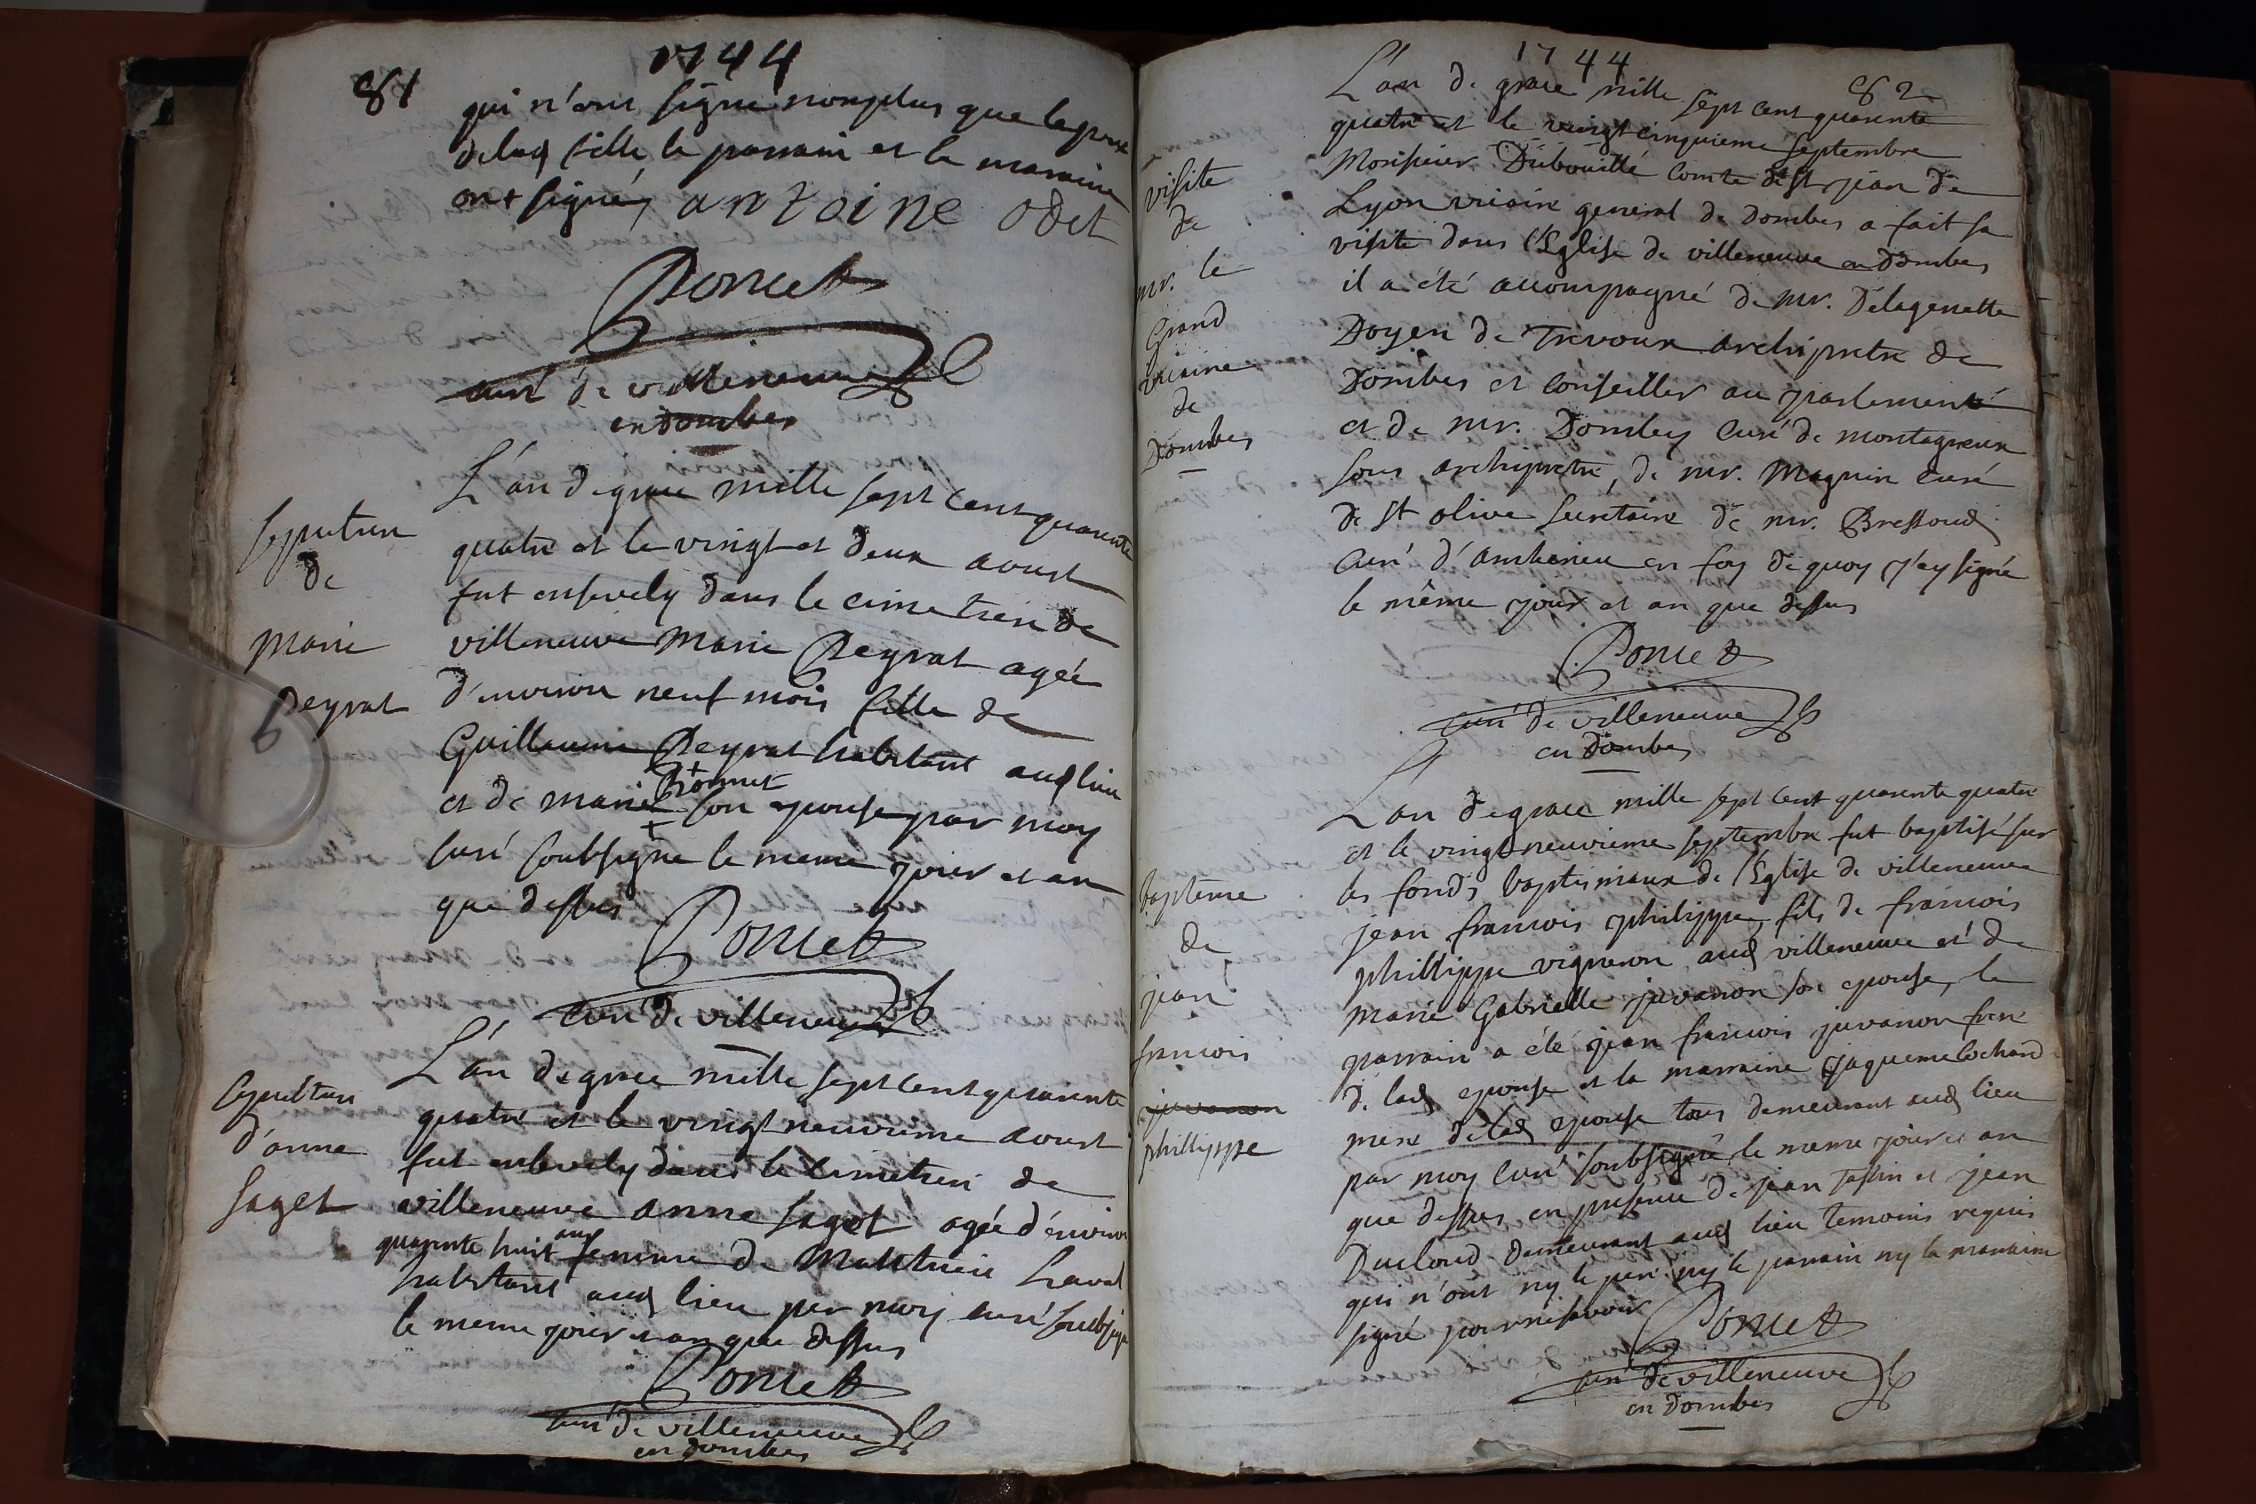 1744
81
qui n'ont signé nonplus que le pere
delad fille le parrain et la marraine
ont signés antoine odet
Poncet
curé de villeneuve
en Dombes
Sepulture
de
Marie
Peyrat
L'an de grace mille sept cent quarente
quatre et le vingt et deux aoust
fut ensevely dans le cimetiere de
villeneuve Marie Peyrat agée
d'environ neuf mois fille de
Guillaume Peyrat habitant aud lieu
et de marie + son epouse par moy
curé soubsigné le meme jour et an
que dessus
Poncet
curé de villeneuve
Sepulture
d'anne
Saget
L'an de grace mille sept cent quarente
quatre et le vingt neuvieme aoust
fut ensevely dans le cimetiere de
villeneuve anne saget agée d'environ
quarente huit ans femme de Matthieu Laval
habitant aud lieu par moy curé soubsigné
le meme jour et an que dessus
Poncet
curé de villeneuve
en Dombes
1744
82
visite
de
mr. le
Grand
vicaire
de
Dombes
L'an de grace mille sept cent quarente
quatre et le vingt cinquieme septembre
Monsieur Dubouillé Comte de st jean de
Lyon vicaire general de Dombes a fait sa
visite dans l'Eglise de villeneuve en Dombes
il a été accompagné de mr. Delagenette
Doyen de Trevoux archipretre de
Dombes et Conseiller au parlement
et de mr. Dombey curé de montagneux
sous archipretre, de mr. Magnin curé
de st olive secretaire de mr. Bressoud
curé d'amberieu en foy de quoy j'ay signé
le même jour et an que dessus
Poncet
curé de villeneuve
en Dombes
bapteme
de
jean
francois
juvanon
philippe
L'an de grace mille sept cent quarente quatre
et le vingt neuvieme septembre fut baptisé sur
les fonds baptismaux de l'Eglise de villeneuve
jean francois philippe, fils de francois
philippe vigneron aud villeneuve et de
marie Gabrielle juvanon son epouse, le
parrain a été jean francois juvanon frere
de lad epouse et la marraine jaqueme Cochard
mere de lad epouse tous demeurant aud lieu
par moy curé soubsigné le meme jour et an
que dessus en presence de jean Tassin et jean
Ducloud demeurant aud lieu temoins requis
qui n'ont ny le pere ny le parrain ny la marraine
signé pour ne scavoir
Poncet
curé de villeneuve
en Dombes